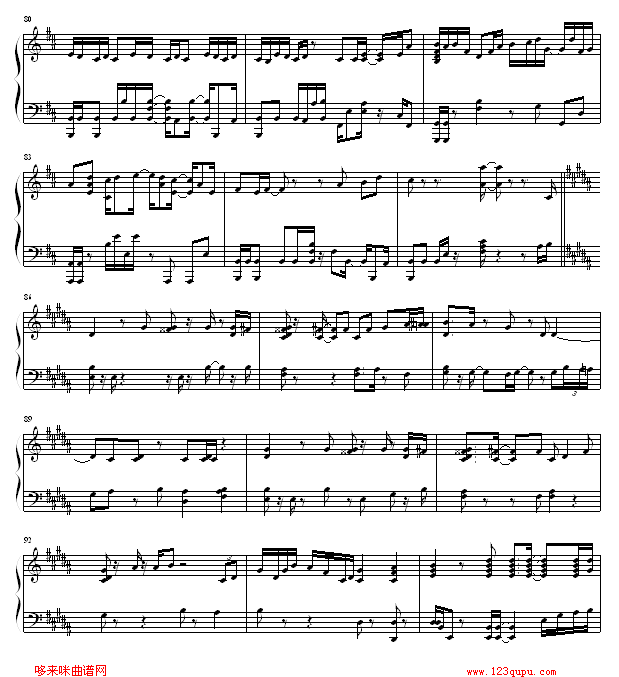 80
83
86
3
89
92
哆来咪曲谱网
www.123qupu.com